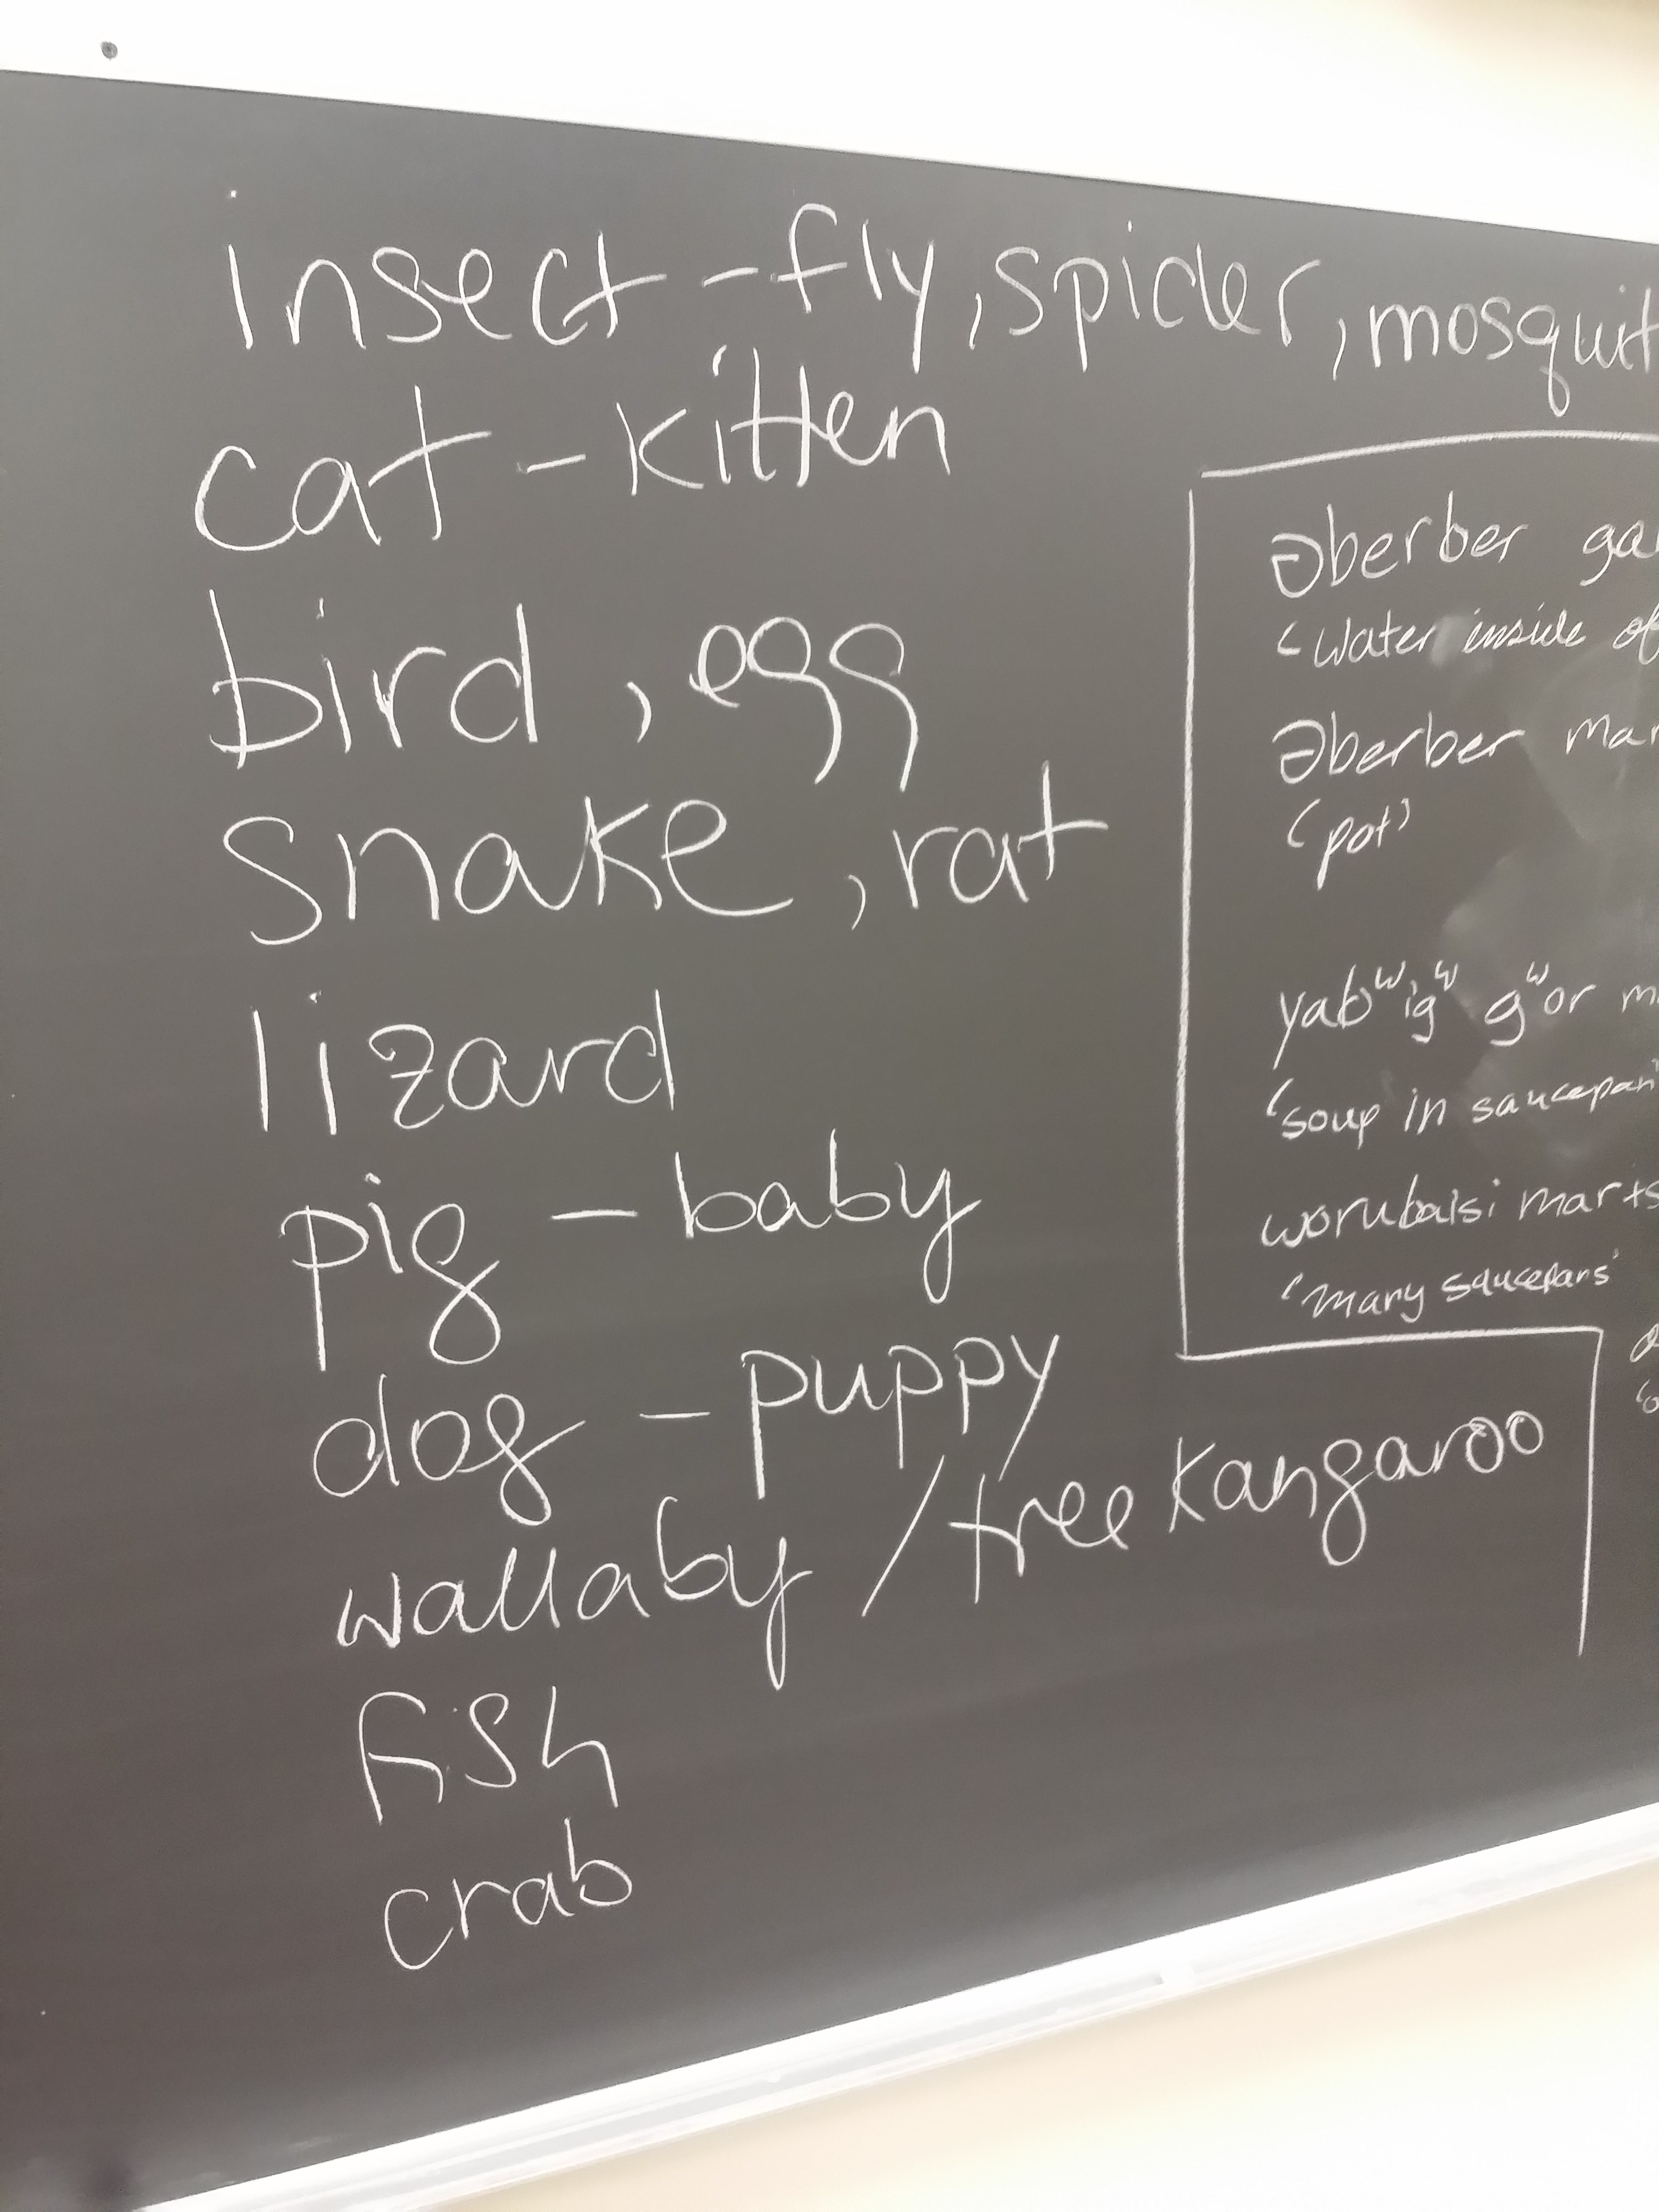 insect - fly, spider, mosquit
cat - kitten
bird, egg
snake, rat
lizard
pig - baby
dog - puppy
wallaby / tree kangaroo
fish
crab
əberber ga
'water inside of
əberber mar
'pot'
yabʷigʷ gʷor m
'soup in saucepan'
worubalsi marts
'many saucepans'